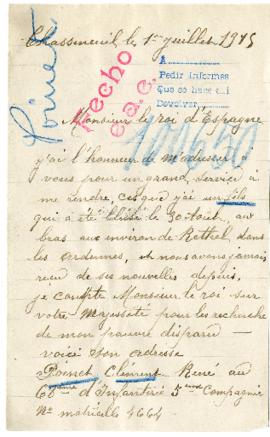 Chasseneuil le 1er juillet 1915
Poinet
Hecho
e.a.e.
A
Pedir informes
Que se hace aquí
Devolver
109650
Monsieur le roi d'Espagne
j'ai l'honneur de m'adresser à
vous pour un grand service à
me rendre, ces que j'ai un fils
qui a été blessé le 30 août, au
bras aux environ de Rethel dans
les ardennes, et nous avons jamais
recu de ses nouvelles depuis,
je compte Monsieur le roi sur
votre Majesseté pour les recherche
de mon pauvre disparu
voici son adresse
Poinet Clément René au
60ème d'Infanterie 5ème Compagnie
No matricule 4664